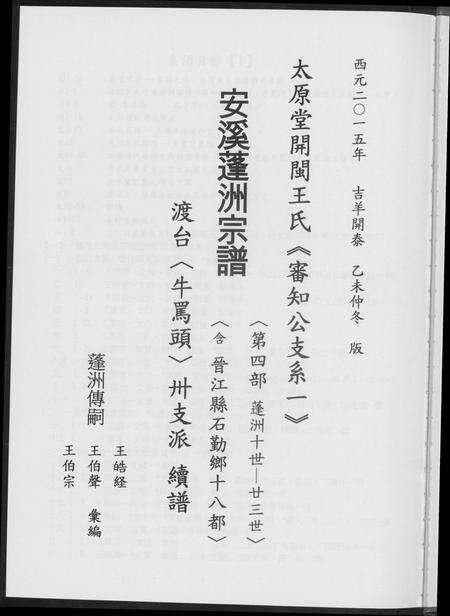 西元二〇一五年 吉羊開泰 乙未仲冬 版
太原堂開閩王氏《審知公支系一》
〈第四部 蓬洲十世—廿三世〉
安溪蓬洲宗譜
〈含 晉江縣石勤鄉十八都〉
渡台〈牛罵頭〉卅支派 續譜
蓬洲傳嗣
王皓経
王伯聲 彙編
王伯宗